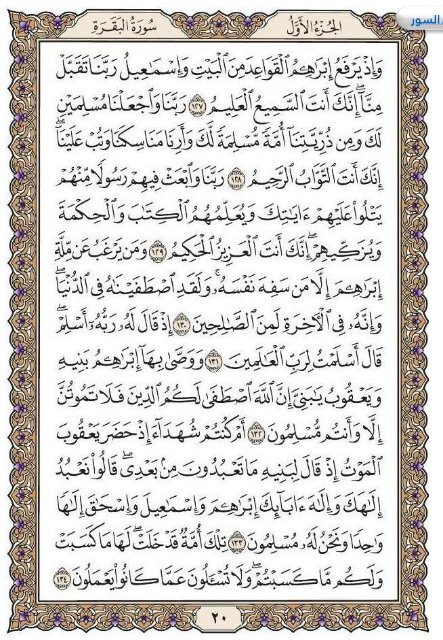 السور
الجزء الأوَّل سُورَةُ البَقَرَةِ
وَإِذْ يَرْفَعُ إِبْرَٰهِـۧمُ ٱلْقَوَاعِدَ مِنَ ٱلْبَيْتِ وَإِسْمَٰعِيلُ رَبَّنَا تَقَبَّلْ
مِنَّآ إِنَّكَ أَنتَ ٱلسَّمِيعُ ٱلْعَلِيمُ ١٢٧ رَبَّنَا وَٱجْعَلْنَا مُسْلِمَيْنِ
لَكَ وَمِن ذُرِّيَّتِنَآ أُمَّةً مُّسْلِمَةً لَّكَ وَأَرِنَا مَنَاسِكَنَا وَتُبْ عَلَيْنَآ
إِنَّكَ أَنتَ ٱلتَّوَّابُ ٱلرَّحِيمُ ١٢٨ رَبَّنَا وَٱبْعَثْ فِيهِمْ رَسُولًا مِّنْهُمْ
يَتْلُوا۟ عَلَيْهِمْ ءَايَٰتِكَ وَيُعَلِّمُهُمُ ٱلْكِتَٰبَ وَٱلْحِكْمَةَ
وَيُزَكِّيهِمْ إِنَّكَ أَنتَ ٱلْعَزِيزُ ٱلْحَكِيمُ ١٢٩ وَمَن يَرْغَبُ عَن مِّلَّةِ
إِبْرَٰهِـۧمَ إِلَّا مَن سَفِهَ نَفْسَهُۥ وَلَقَدِ ٱصْطَفَيْنَٰهُ فِى ٱلدُّنْيَا
وَإِنَّهُۥ فِى ٱلْءَاخِرَةِ لَمِنَ ٱلصَّٰلِحِينَ ١٣٠ إِذْ قَالَ لَهُۥ رَبُّهُۥٓ أَسْلِمْ
قَالَ أَسْلَمْتُ لِرَبِّ ٱلْعَٰلَمِينَ ١٣١ وَوَصَّىٰ بِهَآ إِبْرَٰهِـۧمُ بَنِيهِ
وَيَعْقُوبُ يَٰبَنِىَّ إِنَّ ٱللَّهَ ٱصْطَفَىٰ لَكُمُ ٱلدِّينَ فَلَا تَمُوتُنَّ
إِلَّا وَأَنتُم مُّسْلِمُونَ ١٣٢ أَمْ كُنتُمْ شُهَدَآءَ إِذْ حَضَرَ يَعْقُوبَ
ٱلْمَوْتُ إِذْ قَالَ لِبَنِيهِ مَا تَعْبُدُونَ مِنۢ بَعْدِى قَالُوا۟ نَعْبُدُ
إِلَٰهَكَ وَإِلَٰهَ ءَابَآئِكَ إِبْرَٰهِـۧمَ وَإِسْمَٰعِيلَ وَإِسْحَٰقَ إِلَٰهًا
وَٰحِدًا وَنَحْنُ لَهُۥ مُسْلِمُونَ ١٣٣ تِلْكَ أُمَّةٌ قَدْ خَلَتْ لَهَا مَا كَسَبَتْ
وَلَكُم مَّا كَسَبْتُمْ وَلَا تُسْـَٔلُونَ عَمَّا كَانُوا۟ يَعْمَلُونَ ١٣٤
٢٠